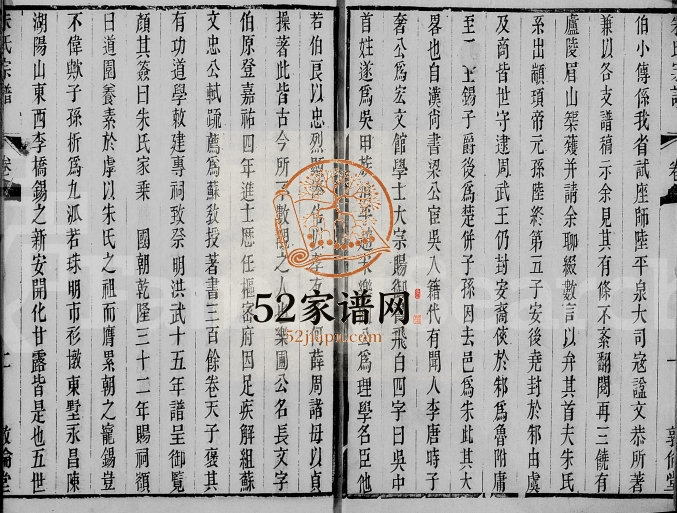 朱氏宗譜
卷
一
敦倫堂
伯小傳係我省試座師陸平泉大司寇諡文恭所著
兼以各支譜稿示余見其有條不紊翻閱再三饒有
廬陵眉山榘矱并請余聊綴數言以弁其首夫朱氏
系出顓頊帝元孫陸終第五子安後堯封於邾由虞
及商皆世守逮周武王仍封安裔俠於邾爲魯附庸
至 王錫子爵後爲楚併子孫因去邑爲朱此其大
畧也自漢尚書梁公宦吳入籍代有聞人李唐時子
奢公爲宏文館學士太宗賜御 飛白四字曰吳中
首姓遂爲吳甲族 爲理學名臣他
若伯良以忠烈 何薛周諸母以貞
操著此皆古今所不數覯之人 樂圃公名長文字
伯原登嘉祐四年進士歷任樞密府因足疾解組蘇
文忠公軾疏薦爲蘇敎授著書三百餘卷天子褒其
有功道學敕建專祠致祭明洪武十五年譜呈御覽
顏其簽曰朱氏家乘 國朝乾隆三十二年賜祠額
曰道園養素於虖以朱氏之祖而膺累朝之寵錫豈
不偉歟子孫析爲九派若珠明市彩墩東墅永昌陳
湖陽山東西李橋錫之新安開化甘露皆是也五世
朱氏宗譜
卷
二
敦倫堂
52家谱网
52jiapu.com